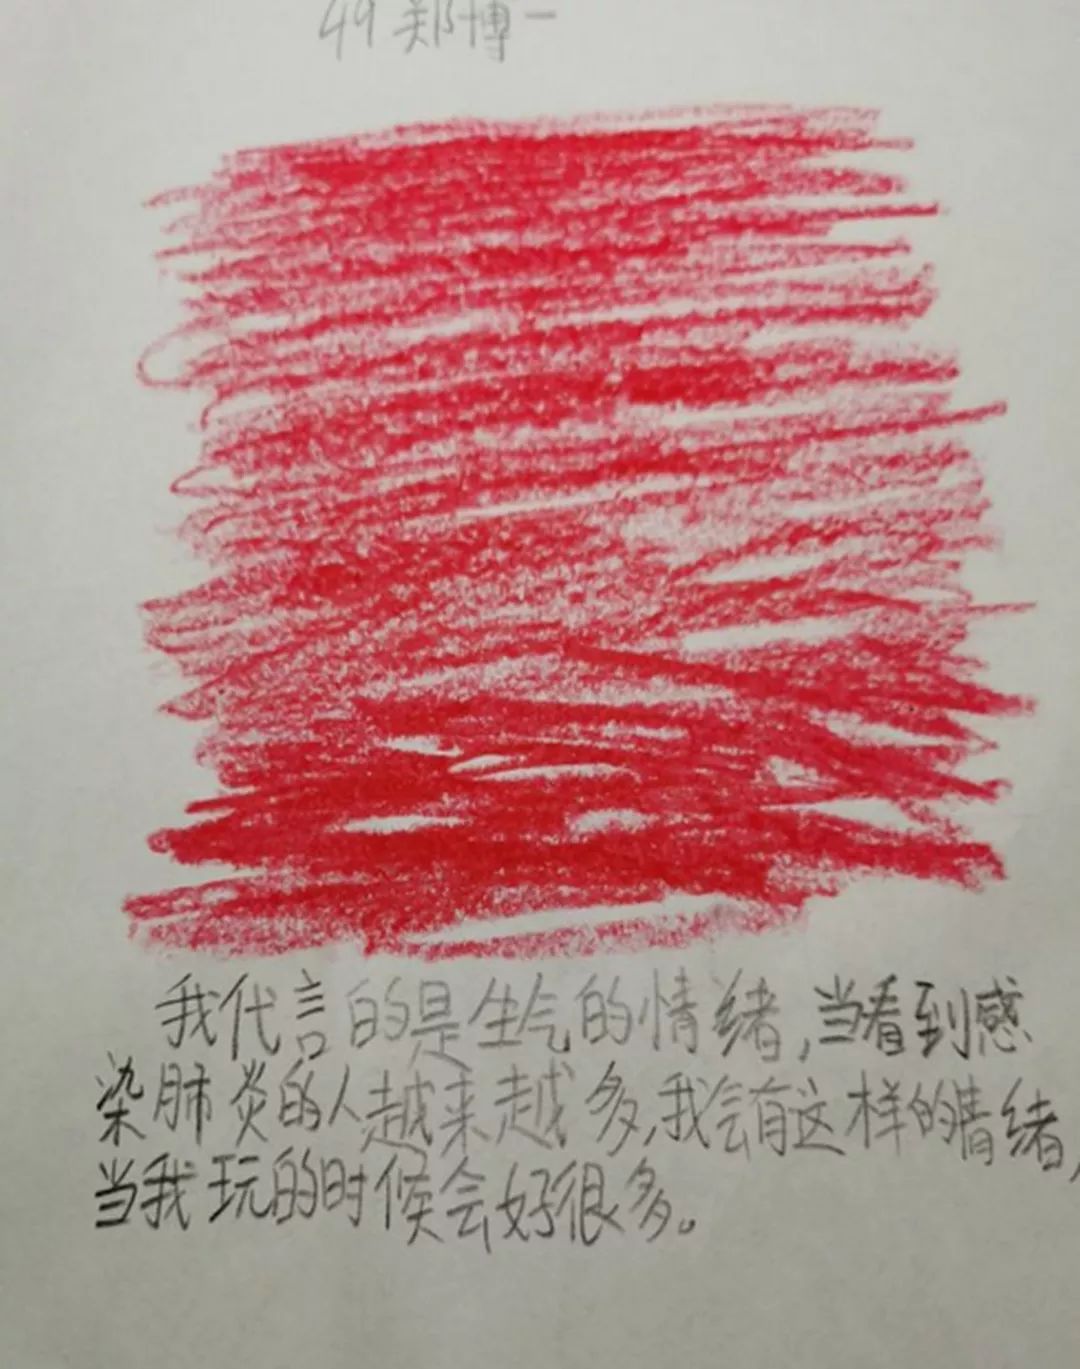 49 郑博一
我代言的是生气的情绪,当看到感
染肺炎的人越来越多,我会有这样的情绪,
当我玩的时候会好很多。